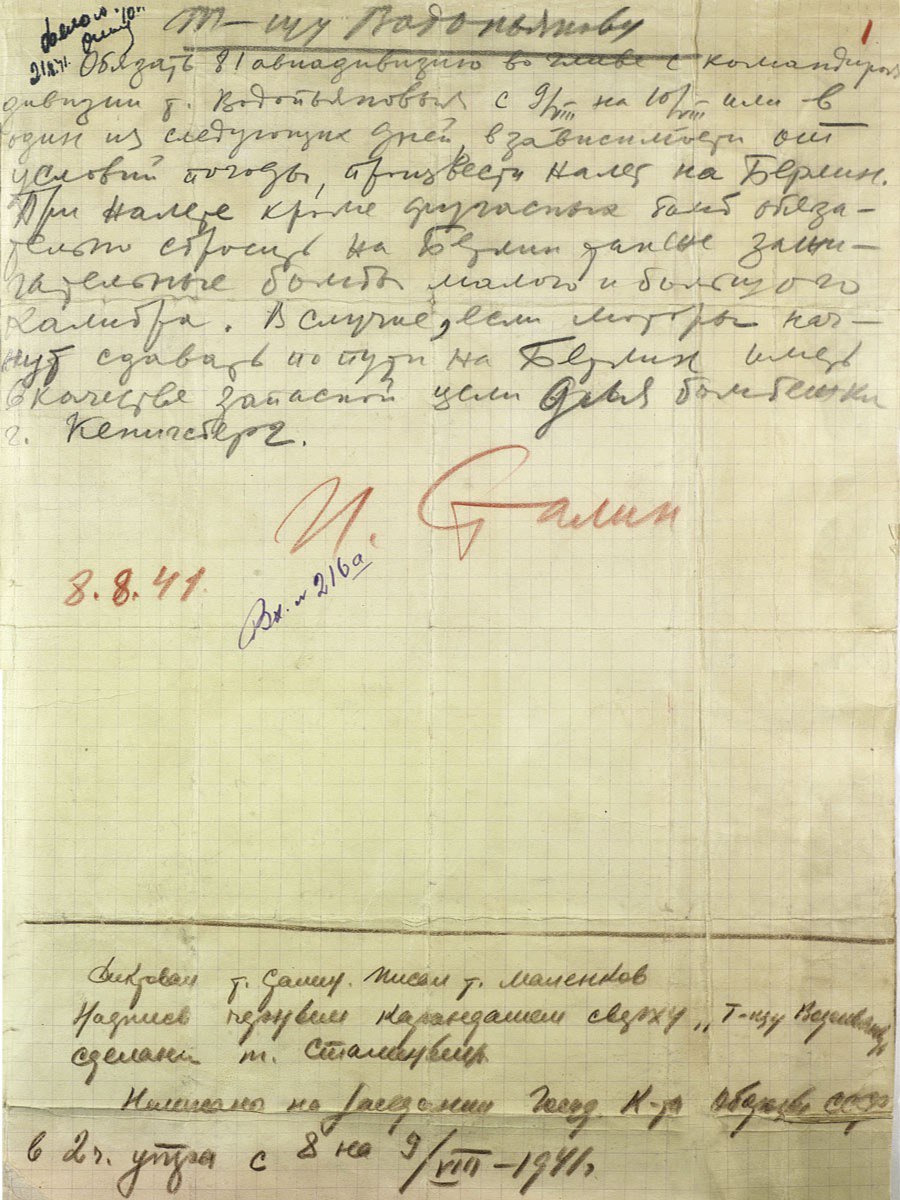 Т-щу Водопьянову
1
21.8.41.
Обязать 81 авиадивизию во главе с командиром
дивизии т. Водопьяновым с 9/VIII на 10/VIII или в
один из следующих дней, в зависимости от
условий погоды, произвести налет на Берлин.
При налете кроме фугасных бомб обяза-
тельно сбросить на Берлин также зажи-
гательные бомбы малого и большого
калибра. В случае, если моторы нач-
нут сдавать по пути на Берлин иметь
в качестве запасной цели для бомбежки
г. Кенигсберг.
И. Сталин
8.8.41.
Вх. № 216а
Диктовал т. Сталин. Писал т. Маленков
Надпись черным карандашем сверху „Т-щу Водопьянову"
сделана т. Сталиным.
Написано на заседании Госуд. К-та Обороны СССР
в 2 ч. утра с 8 на 9/VIII-1941г.